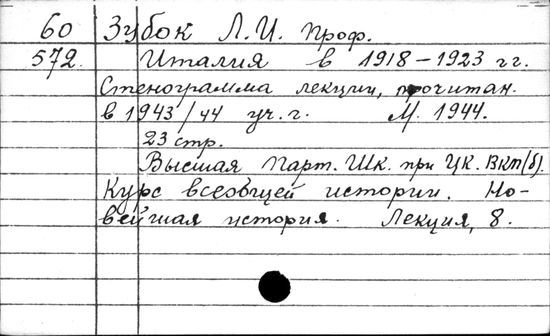 60 Зубок Л. И. Проф.
572. Италия в 1918-1923 гг.
Стенограмма лекции, прочитан.
в 1943/44 уч. г. М. 1944.
23 стр.
Высшая Парт. Шк. при ЦК. ВКП(б).
Курс всеобщей истории. Но-
вейшая история. Лекция, 8.